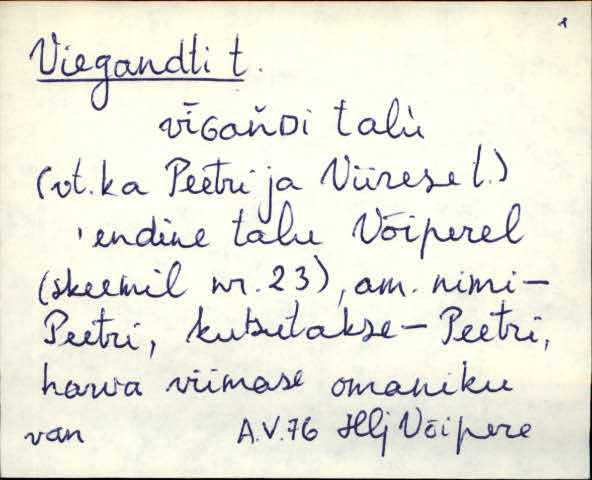 Viegandti t.
vīGaňDi talù
(vt. ka Peetri ja Viirese t.)
'endine talu Võiperel
(skeemil nr. 23), am. nimi-
Peetri, kutsutakse - Peetri,
harva viimase omaniku
van A.V.76 Hlj Võipere